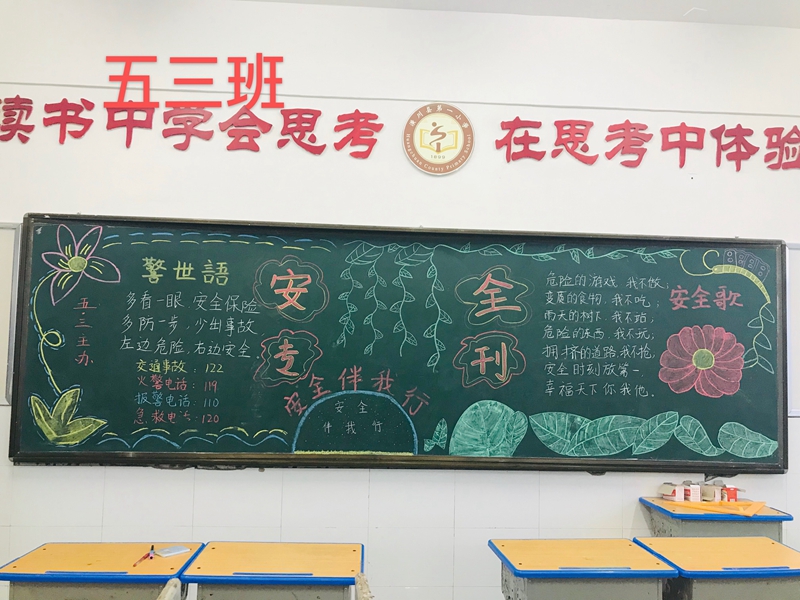 五三班
读书中学会思考
在思考中体验
1909
警世語
多看一眼 安全保险
多防一步,少出事故
左边危险,右边安全
交通事故:122
火警电话:119
报警电话:110
急救电话:120
五·三主办
安全
专刊
安全伴我行
安全
伴我行
安全歌
危险的游戏 我不做;
变莫的食物,我不吃;
雨天的树下,我不站;
危险的东西,我不玩;
拥挤的道路,我不抢;
安全时刻放第一
幸福天下你我他。